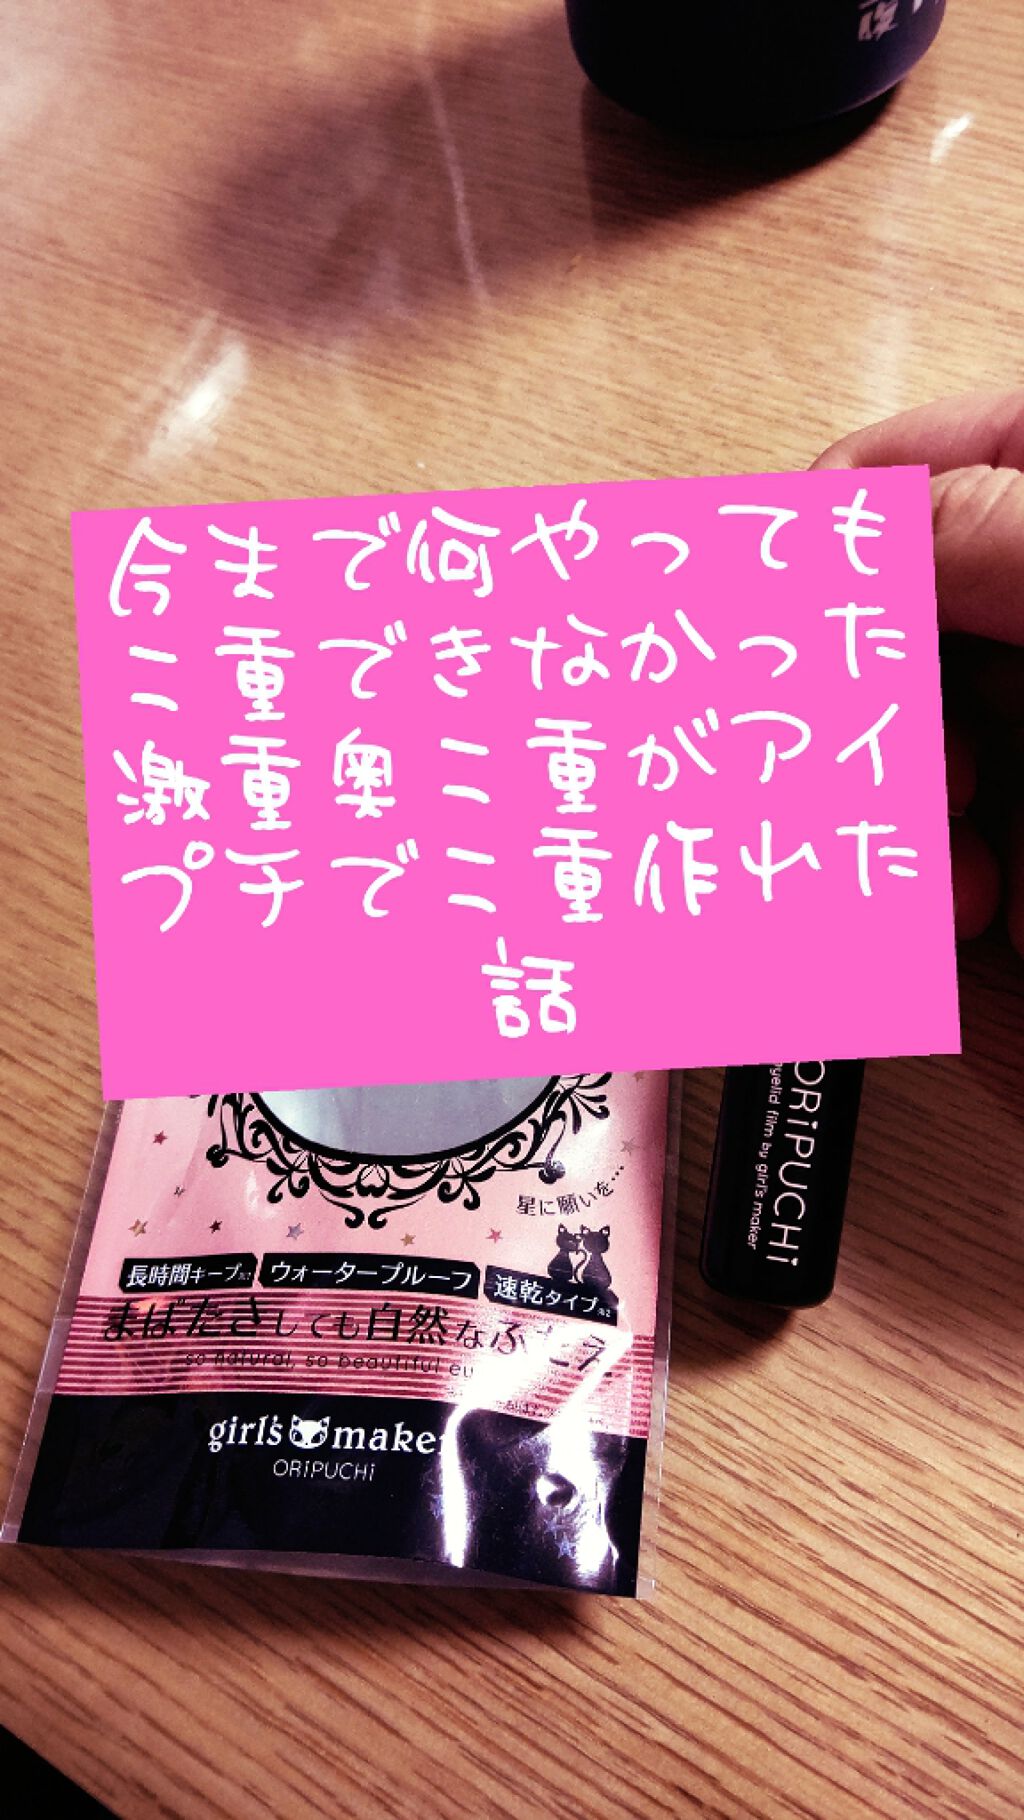 今まで何やっても
二重できなかった
激重奥二重がアイ
プチで二重作れた
話
ORiPUCHi
eyelid film by girl's maker
星に願いを…
長時間キープ※2
ウォータープルーフ
速乾タイプ※2
まばたきしても自然なふたえ
so natural, so beautiful
girl's maker
ORiPUCHi